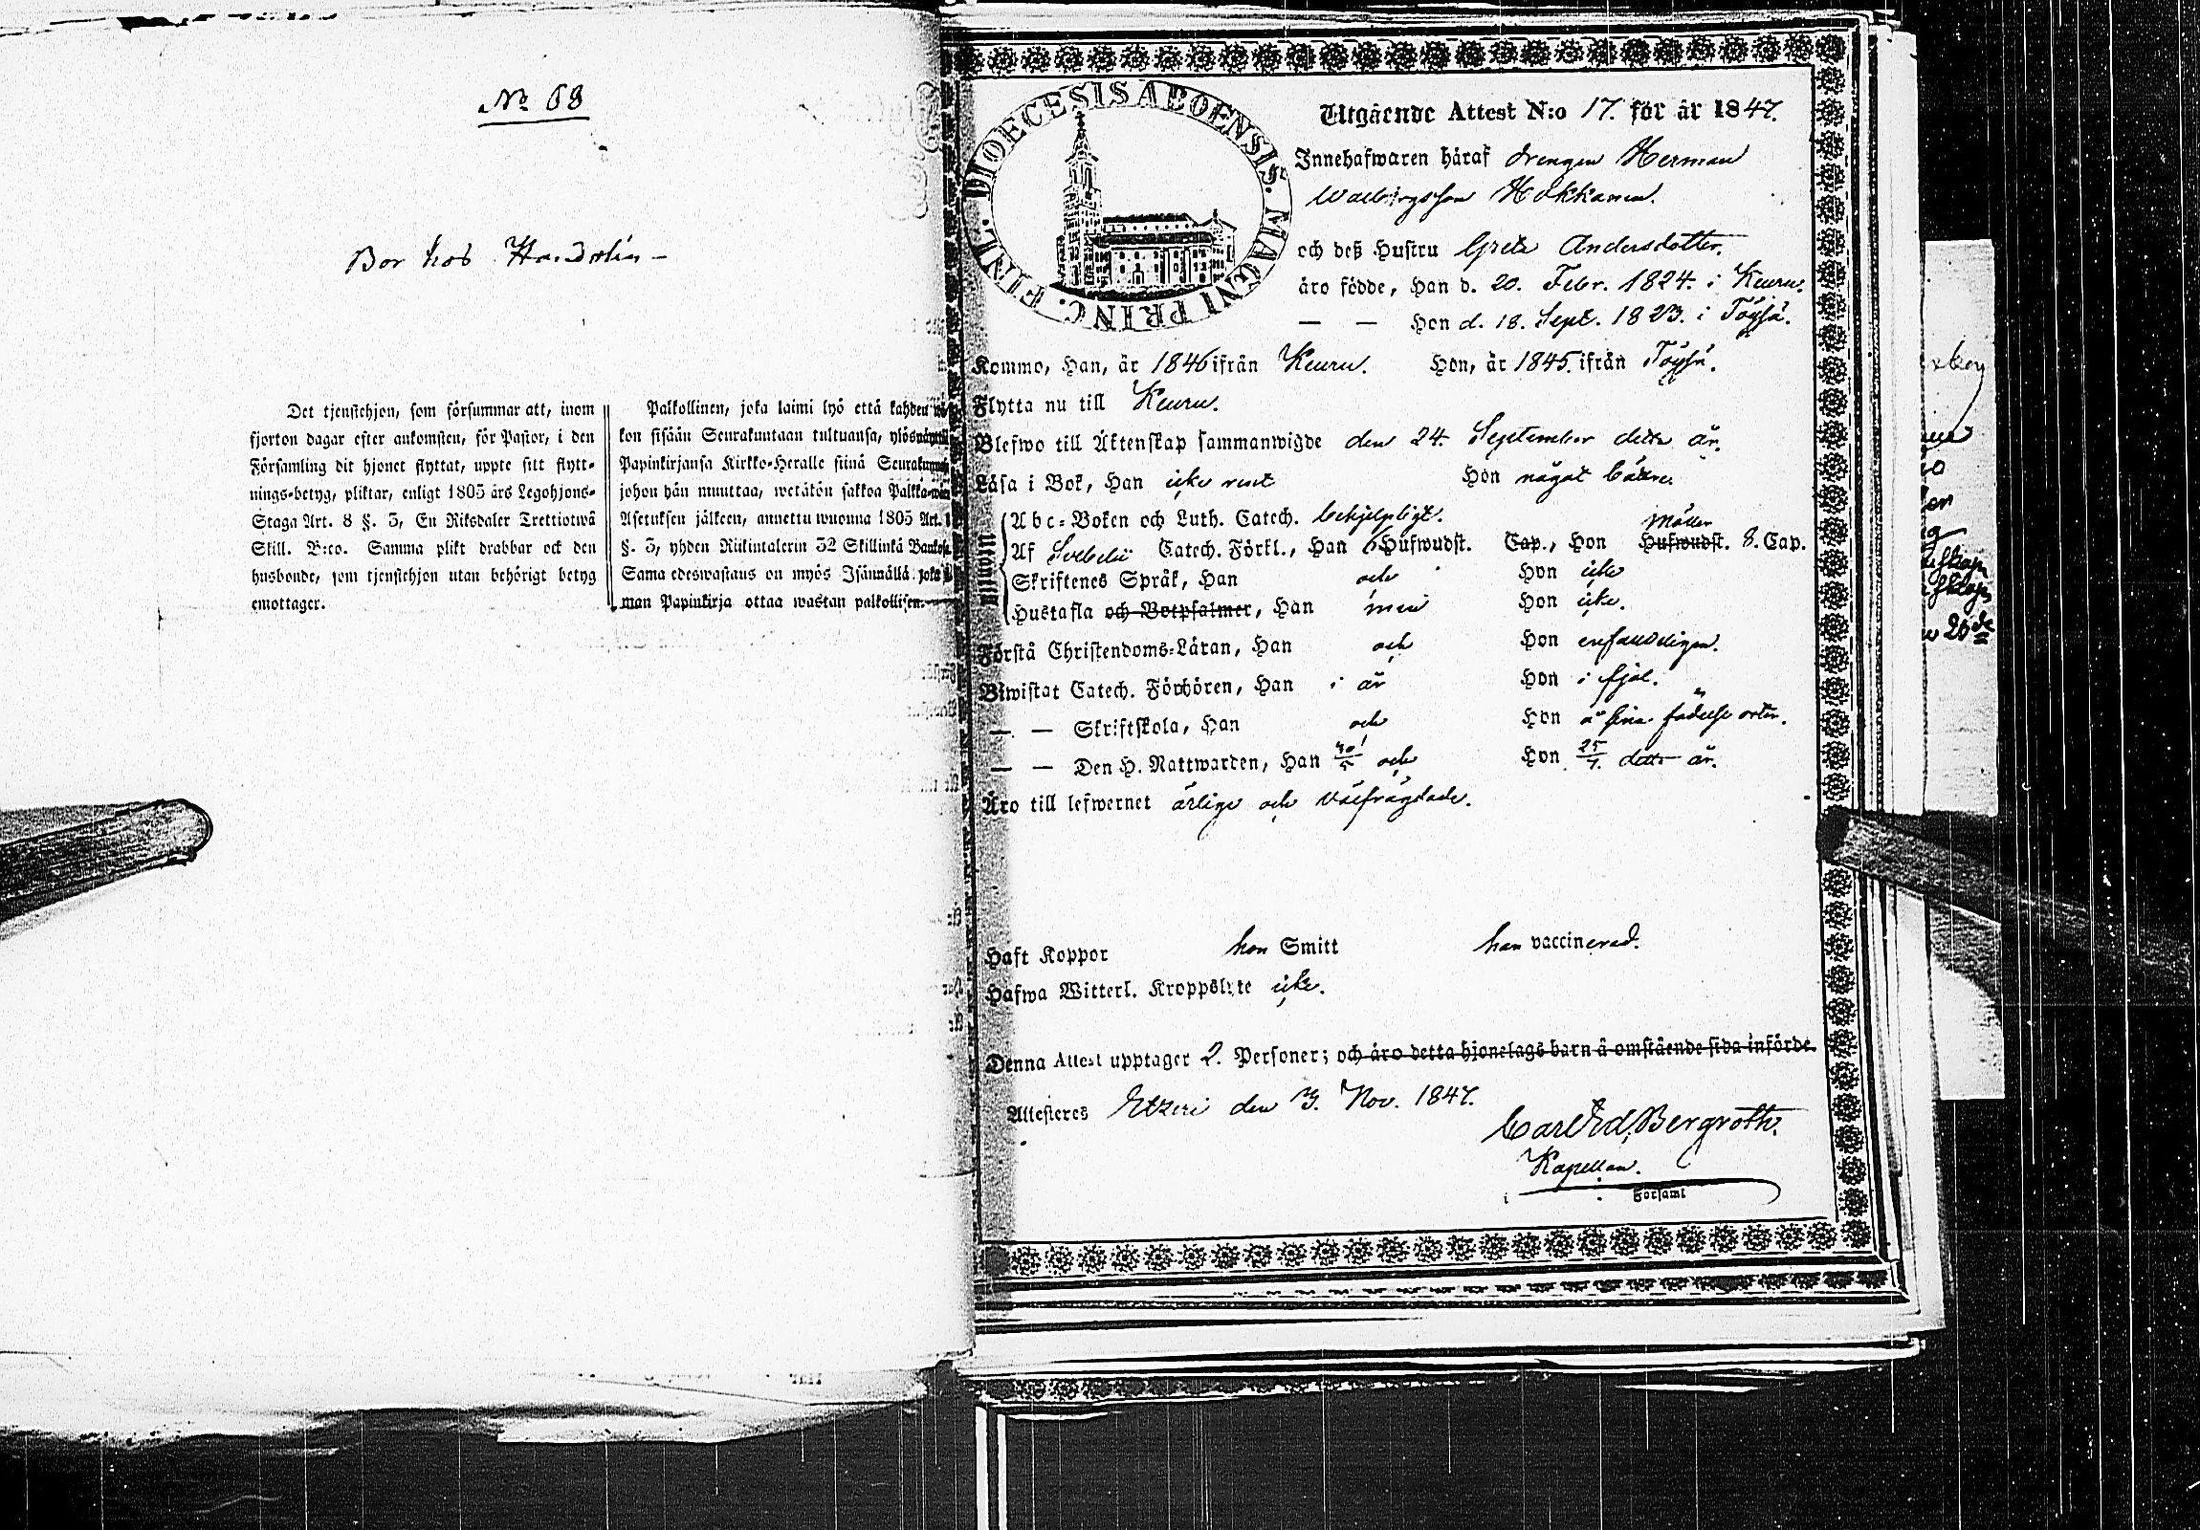 No 68
Bor hos Handolin –
Det tjenstehjon, som försummar att, inom
fjorton dagar efter ankomsten, för Pastor, i den
Församling dit hjonet flyttat, uppte sitt flytt-
nings-betyg, pliktar, enligt 1805 års Legohjons-
Staga Art. 8 §. 3, En Riksdaler Trettiotwå
Skill. B:co. Samma plikt drabbar ock den
husbonde, som tjenstehjon utan behörigt betyg
emottager.
Palkollinen, joka laimi lyö että kahden
kon sisään Seurakuntaan tultuansa,
Papinkirjansa Kirkko-Heralle siinä
johon hän muuttaa, wetäkön sakkoa
Asetuksen jälkeen, annettu wuonna 1805 Art.
§. 3, yhden Riikintalerin 32 Skillinkiä
Sama edeswastaus on myös Isännällä joka
man Papinkirja ottaa wastan palkollisen.
DIOECESIS ABOENSIS. MAGNI PRINC. FINL.
Utgående Attest N:o 17. för år 1847.
Innehafwaren häraf drengen Herman
Hokkanen.
och deß Hustru Greta Andersdotter.
äro födde, Han d. 20. Febr. 1824. i Keuru.
— — Hon d. 18. Sept. 1823. i Töysä.
Kommo, Han, år 1846 ifrån Keuru. Hon, år 1845. ifrån Töysä.
Flytta nu till Keuru.
Blefwo till Äktenskap sammanwigde den 24. September detta år.
Läsa i Bok, Han icke rent Hon något bättre.
Utantill
Abc-Boken och Luth. Catech. behjelpligt.
Af Svebelii Catech. Förkl., Han 6 Hufwudst. Cap., Hon Hufwudst. 8. Cap.
Skriftenes Språk, Han och Hon icke
Hustafla och Botpsalmer, Han men Hon icke.
Förstå Christendoms-Läran, Han och Hon enfaldigen.
Biwistat Catech. Förhören, Han i år Hon i fjol.
— — Skriftskola, Han och Hon å sina födelse orter.
— — Den H. Nattwarden, Han och Hon 25/7. detta år.
Äro till lefwernet ärlige och välfrägdade.
Haft Koppor hon Smitt han vaccinerad.
Hafwa Witterl. Kroppslyte icke.
Denna Attest upptager 2. Personer; och äro detta hjonelags barn å omstående sida införde.
Attesteras Etzeri den 3. Nov. 1847.
Carl Ed. Bergroth.
Kapellan.
i Församl